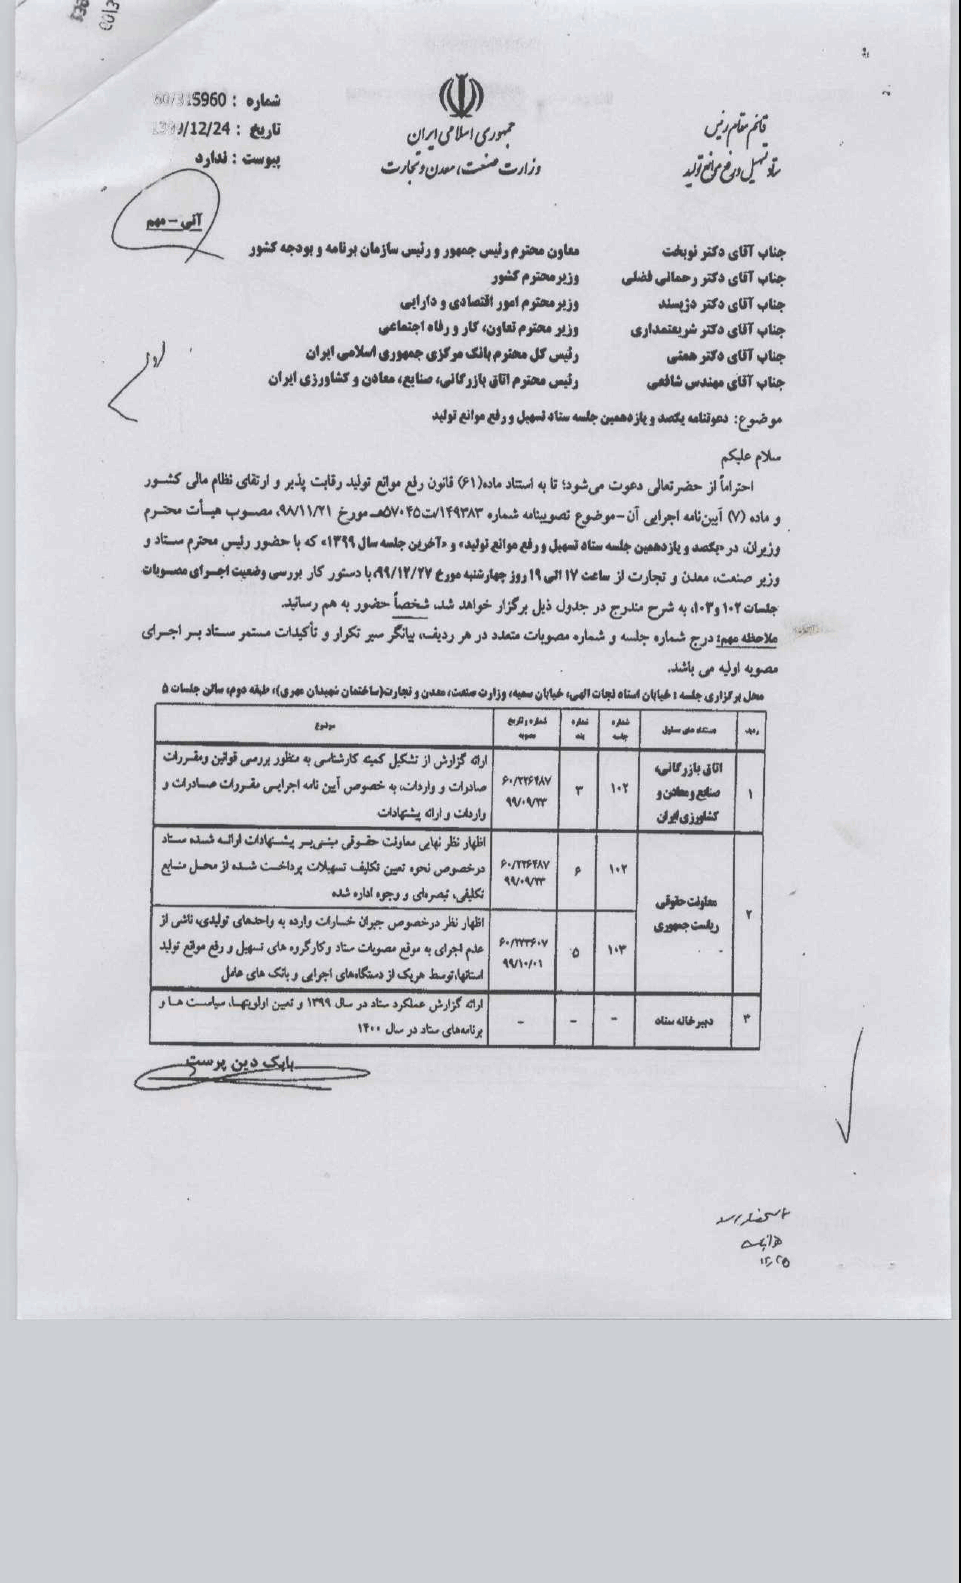 شماره : 60/315960
تاریخ : 1399/12/24
پیوست : ندارد
جمهوری اسلامی ایران
وزارت صنعت، معدن و تجارت
قائم مقام رئیس
ستاد تسهیل و رفع موانع تولید
آنی - مهم
جناب آقای دکتر نوبخت معاون محترم رئیس جمهور و رئیس سازمان برنامه و بودجه کشور
جناب آقای دکتر رحمانی فضلی وزیر محترم کشور
جناب آقای دکتر دژپسند وزیر محترم امور اقتصادی و دارایی
جناب آقای دکتر شریعتمداری وزیر محترم تعاون، کار و رفاه اجتماعی
جناب آقای دکتر همتی رئیس کل محترم بانک مرکزی جمهوری اسلامی ایران
جناب آقای مهندس شافعی رئیس محترم اتاق بازرگانی، صنایع، معادن و کشاورزی ایران
موضوع: دعوتنامه یکصد و یازدهمین جلسه ستاد تسهیل و رفع موانع تولید
سلام علیکم
احتراماً از حضرتعالی دعوت می‌شود؛ تا به استناد ماده(۶۱) قانون رفع موانع تولید رقابت پذیر و ارتقای نظام مالی کشور
و ماده (۷) آیین‌نامه اجرایی آن-موضوع تصویبنامه شماره ۱۴۹۳۸۳/ت۵۷۰۴۵هـ مورخ ۹۸/۱۱/۲۱، مصوب هیأت محترم
وزیران، در «یکصد و یازدهمین جلسه ستاد تسهیل و رفع موانع تولید» و «آخرین جلسه سال ۱۳۹۹» که با حضور رئیس محترم ستاد و
وزیر صنعت، معدن و تجارت از ساعت ۱۷ الی ۱۹ روز چهارشنبه مورخ ۹۹/۱۲/۲۷، با دستور کار بررسی وضعیت اجرای مصوبات
جلسات ۱۰۲ و ۱۰۳، به شرح مندرج در جدول ذیل برگزار خواهد شد، شخصاً حضور به هم رسانید.
ملاحظه مهم: درج شماره جلسه و شماره مصوبات متعدد در هر ردیف، بیانگر سیر تکرار و تأکیدات مستمر ستاد بر اجرای
مصوبه اولیه می باشد.
محل برگزاری جلسه : خیابان استاد نجات الهی، خیابان سمیه، وزارت صنعت، معدن و تجارت(ساختمان شهیدان مهری)، طبقه دوم، سالن جلسات ۵
ردیف دستگاه های مسئول شماره جلسه شماره بند شماره و تاریخ مصوبه موضوع
۱ اتاق بازرگانی، صنایع و معادن و کشاورزی ایران ۱۰۲ ۳ ۶۰/۲۲۶۹۸۷ ۹۹/۰۹/۲۳ ارائه گزارش از تشکیل کمیته کارشناسی به منظور بررسی قوانین و مقررات
صادرات و واردات، به خصوص آیین نامه اجرایی مقررات صادرات و
واردات و ارائه پیشنهادات
۲ معاونت حقوقی ریاست جمهوری ۱۰۲ ۶ ۶۰/۲۲۶۹۸۷ ۹۹/۰۹/۲۳ اظهار نظر نهایی معاونت حقوقی مبنی‌بر پیشنهادات ارائه شده ستاد
درخصوص نحوه تعیین تکلیف تسهیلات پرداخت شده از محل منابع
تکلیفی، تبصره‌ای و وجوه اداره شده
۱۰۳ ۵ ۶۰/۲۳۳۶۰۷ ۹۹/۱۰/۰۱ اظهار نظر درخصوص جبران خسارات وارده به واحدهای تولیدی، ناشی از
عدم اجرای به موقع مصوبات ستاد و کارگروه های تسهیل و رفع موانع تولید
استانها، توسط هریک از دستگاه‌های اجرایی و بانک های عامل
۳ دبیرخانه ستاد - - - ارائه گزارش عملکرد ستاد در سال ۱۳۹۹ و تعیین اولویتها، سیاست ها و
برنامه‌های ستاد در سال ۱۴۰۰
بابک دین پرست